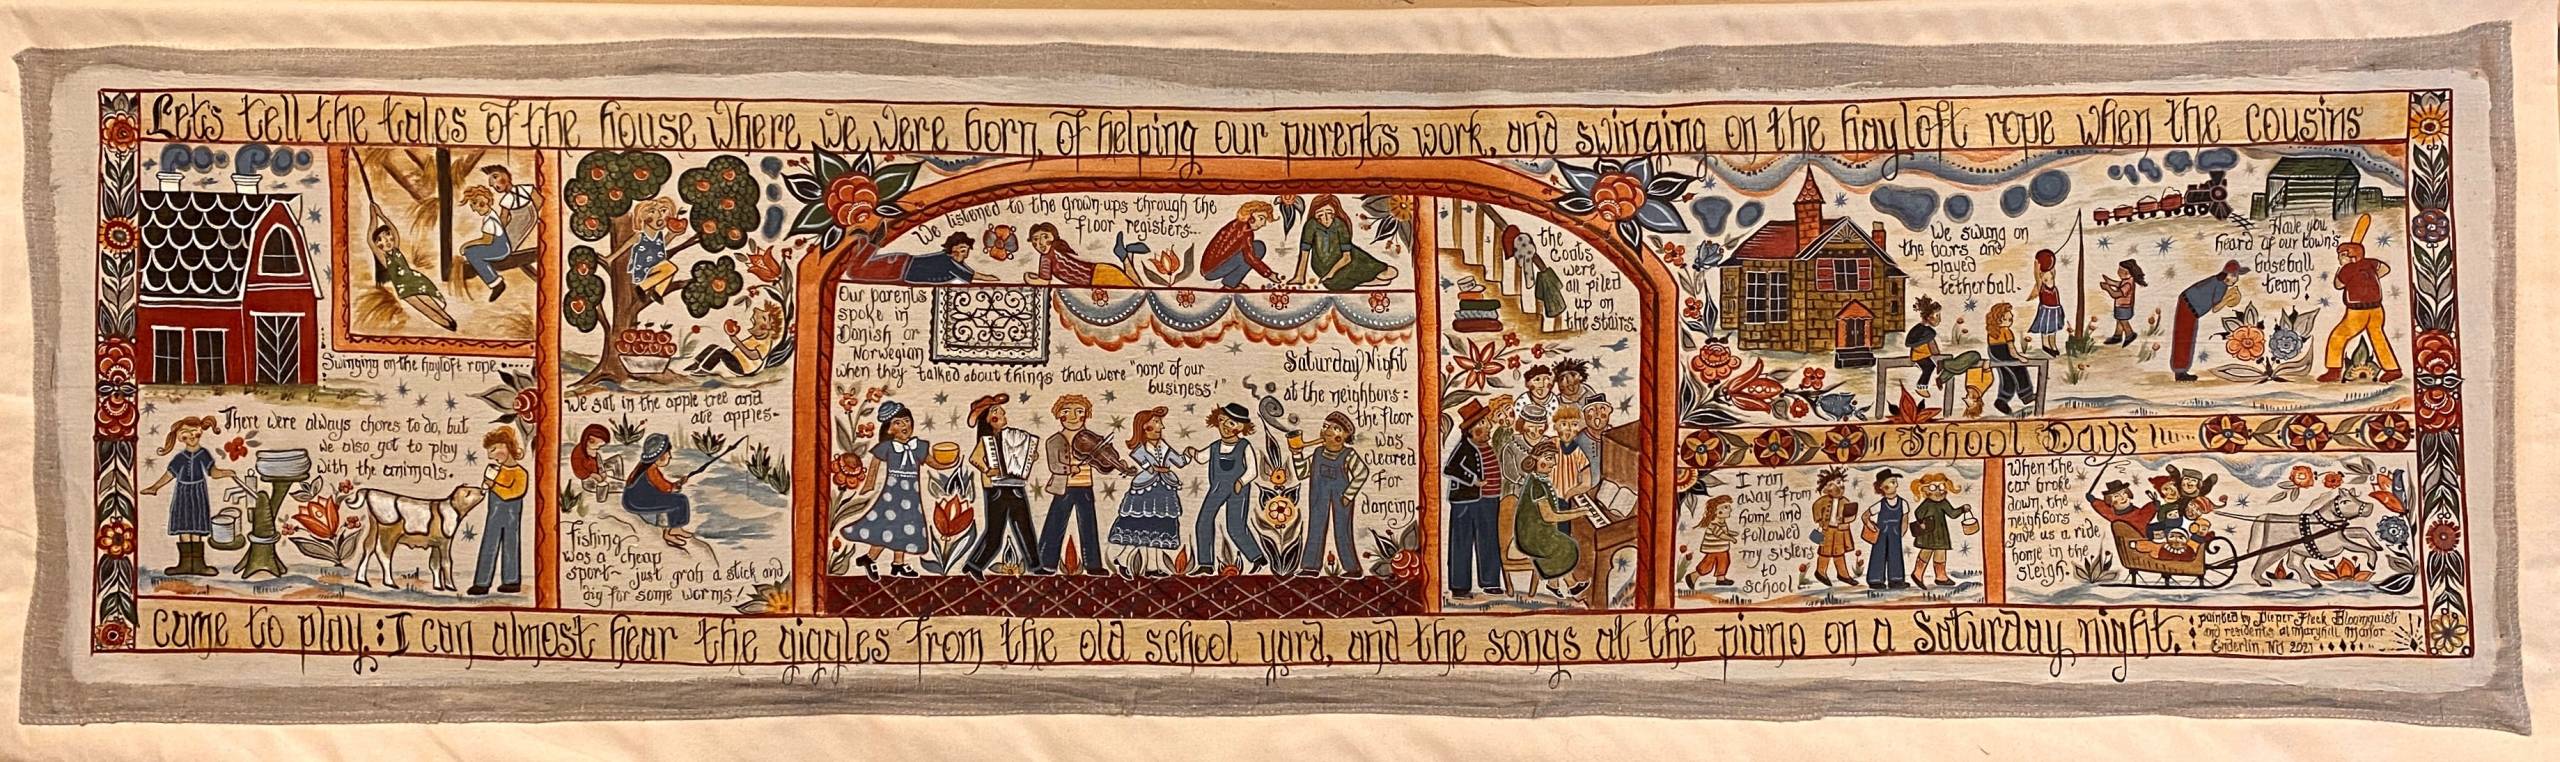 Let's tell the tales of the house where we were born, of helping our parents work, and swinging on the hayloft rope when the cousins
Swinging on the hayloft rope.....
There were always chores to do, but
we also got to play
with the animals.
We sat in the apple tree and
ate apples~
Fishing
was a cheap
sport~ just grab a stick and
dig for some worms!
We listened to the grown-ups through the
floor registers...
Our parents
spoke in
Danish or
Norwegian
when they talked about things that were "none of our
business!"
Saturday Night
at the neighbors:
the floor
was
cleared
for
dancing.
the
coats
were
all piled
up on
the stairs.
We swung on
the bars and
played
tetherball.
Have you
heard of our town's
baseball
team?
School Days
I ran
away from
home and
followed
my sisters
to
school
When the
car broke
down, the
neighbors
gave us a ride
home in the
sleigh.
came to play: I can almost hear the giggles from the old school yard, and the songs at the piano on a Saturday night.
painted by Pieper Fleck Bloomquist
and residents at Maryhill Manor
Enderlin, ND 2021